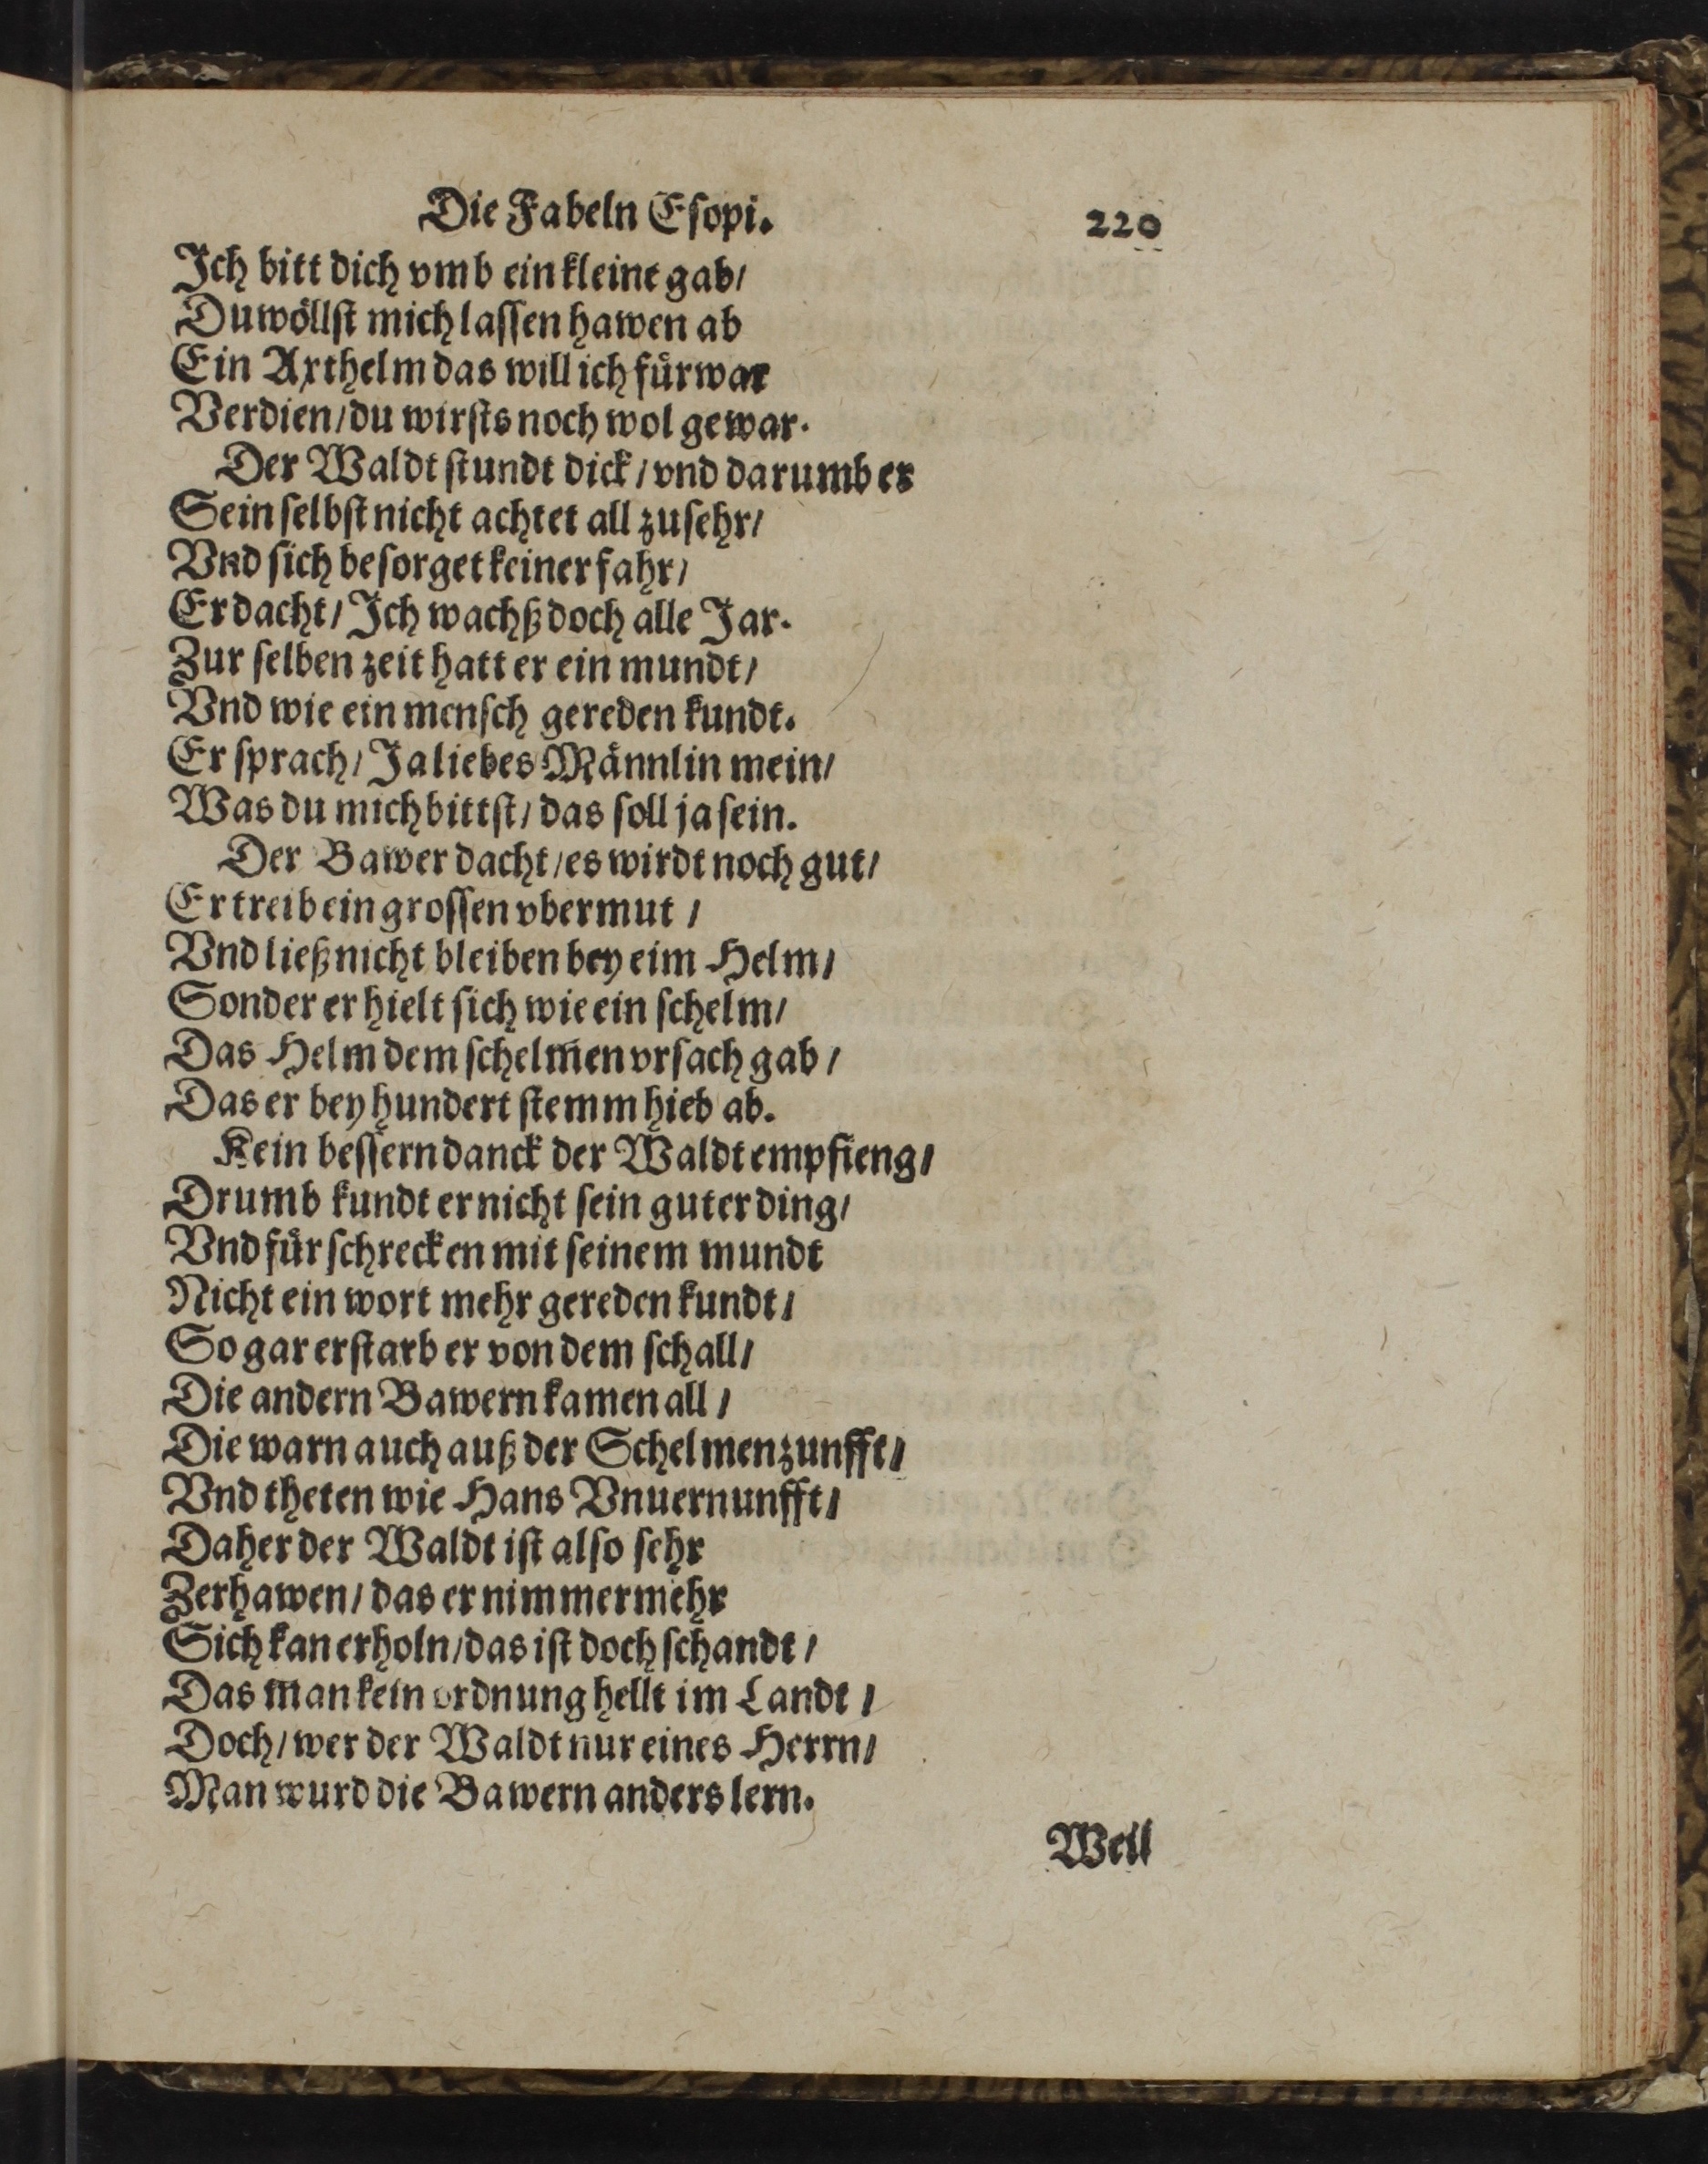 Die Fabeln Eſopi. 220
Ich bitt dich vmb ein kleine gab/
Du wöllſt mich laſſen hawen ab
Ein Axthelm das will ich fürwar
Verdien/ du wirſts noch wol gewar.
Der Waldt ſtundt dick/ vnd darumb er
Sein ſelbſt nicht achtet all zu ſehr/
Vnd ſich beſorget keiner fahr/
Er dacht/ Ich wachß doch alle Jar.
Zur ſelben zeit hatt er ein mundt/
Vnd wie ein menſch gereden kundt.
Er ſprach/ Ja liebes Männlin mein/
Was du mich bittſt/ das ſoll ja ſein.
Der Bawer dacht/ es wirdt noch gut/
Er treib ein groſſen vbermut/
Vnd ließ nicht bleiben bey eim Helm/
Sonder er hielt ſich wie ein ſchelm/
Das Helm dem ſchelmen vrſach gab/
Das er bey hundert ſtemm hieb ab.
Kein beſſern danck der Waldt empfieng/
Drumb kundt er nicht ſein guter ding/
Vnd für ſchrecken mit ſeinem mundt
Nicht ein wort mehr gereden kundt/
So gar erſtarb er von dem ſchall/
Die andern Bawern kamen all/
Die warn auch auß der Schelmenzunfft/
Vnd theten wie Hans Vnuernunfft/
Daher der Waldt iſt alſo ſehr
Zerhawen/ das er nimmermehr
Sich kan erholn/ das iſt doch ſchandt/
Das man kein ordnung hellt im Landt/
Doch/ wer der Waldt nur eines Herrn/
Man wurd die Bawern anders lern.
Weil